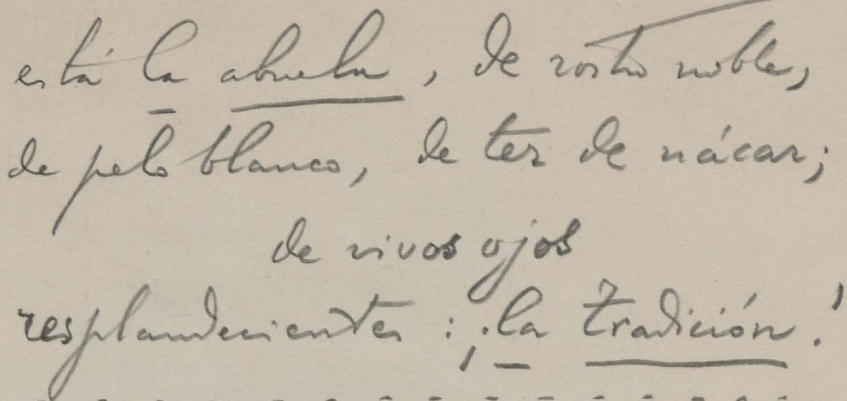 está la abuela, de rostro noble,
de pelo blanco, de tez de nácar;
de vivos ojos
resplandecientes: ¡la tradición!